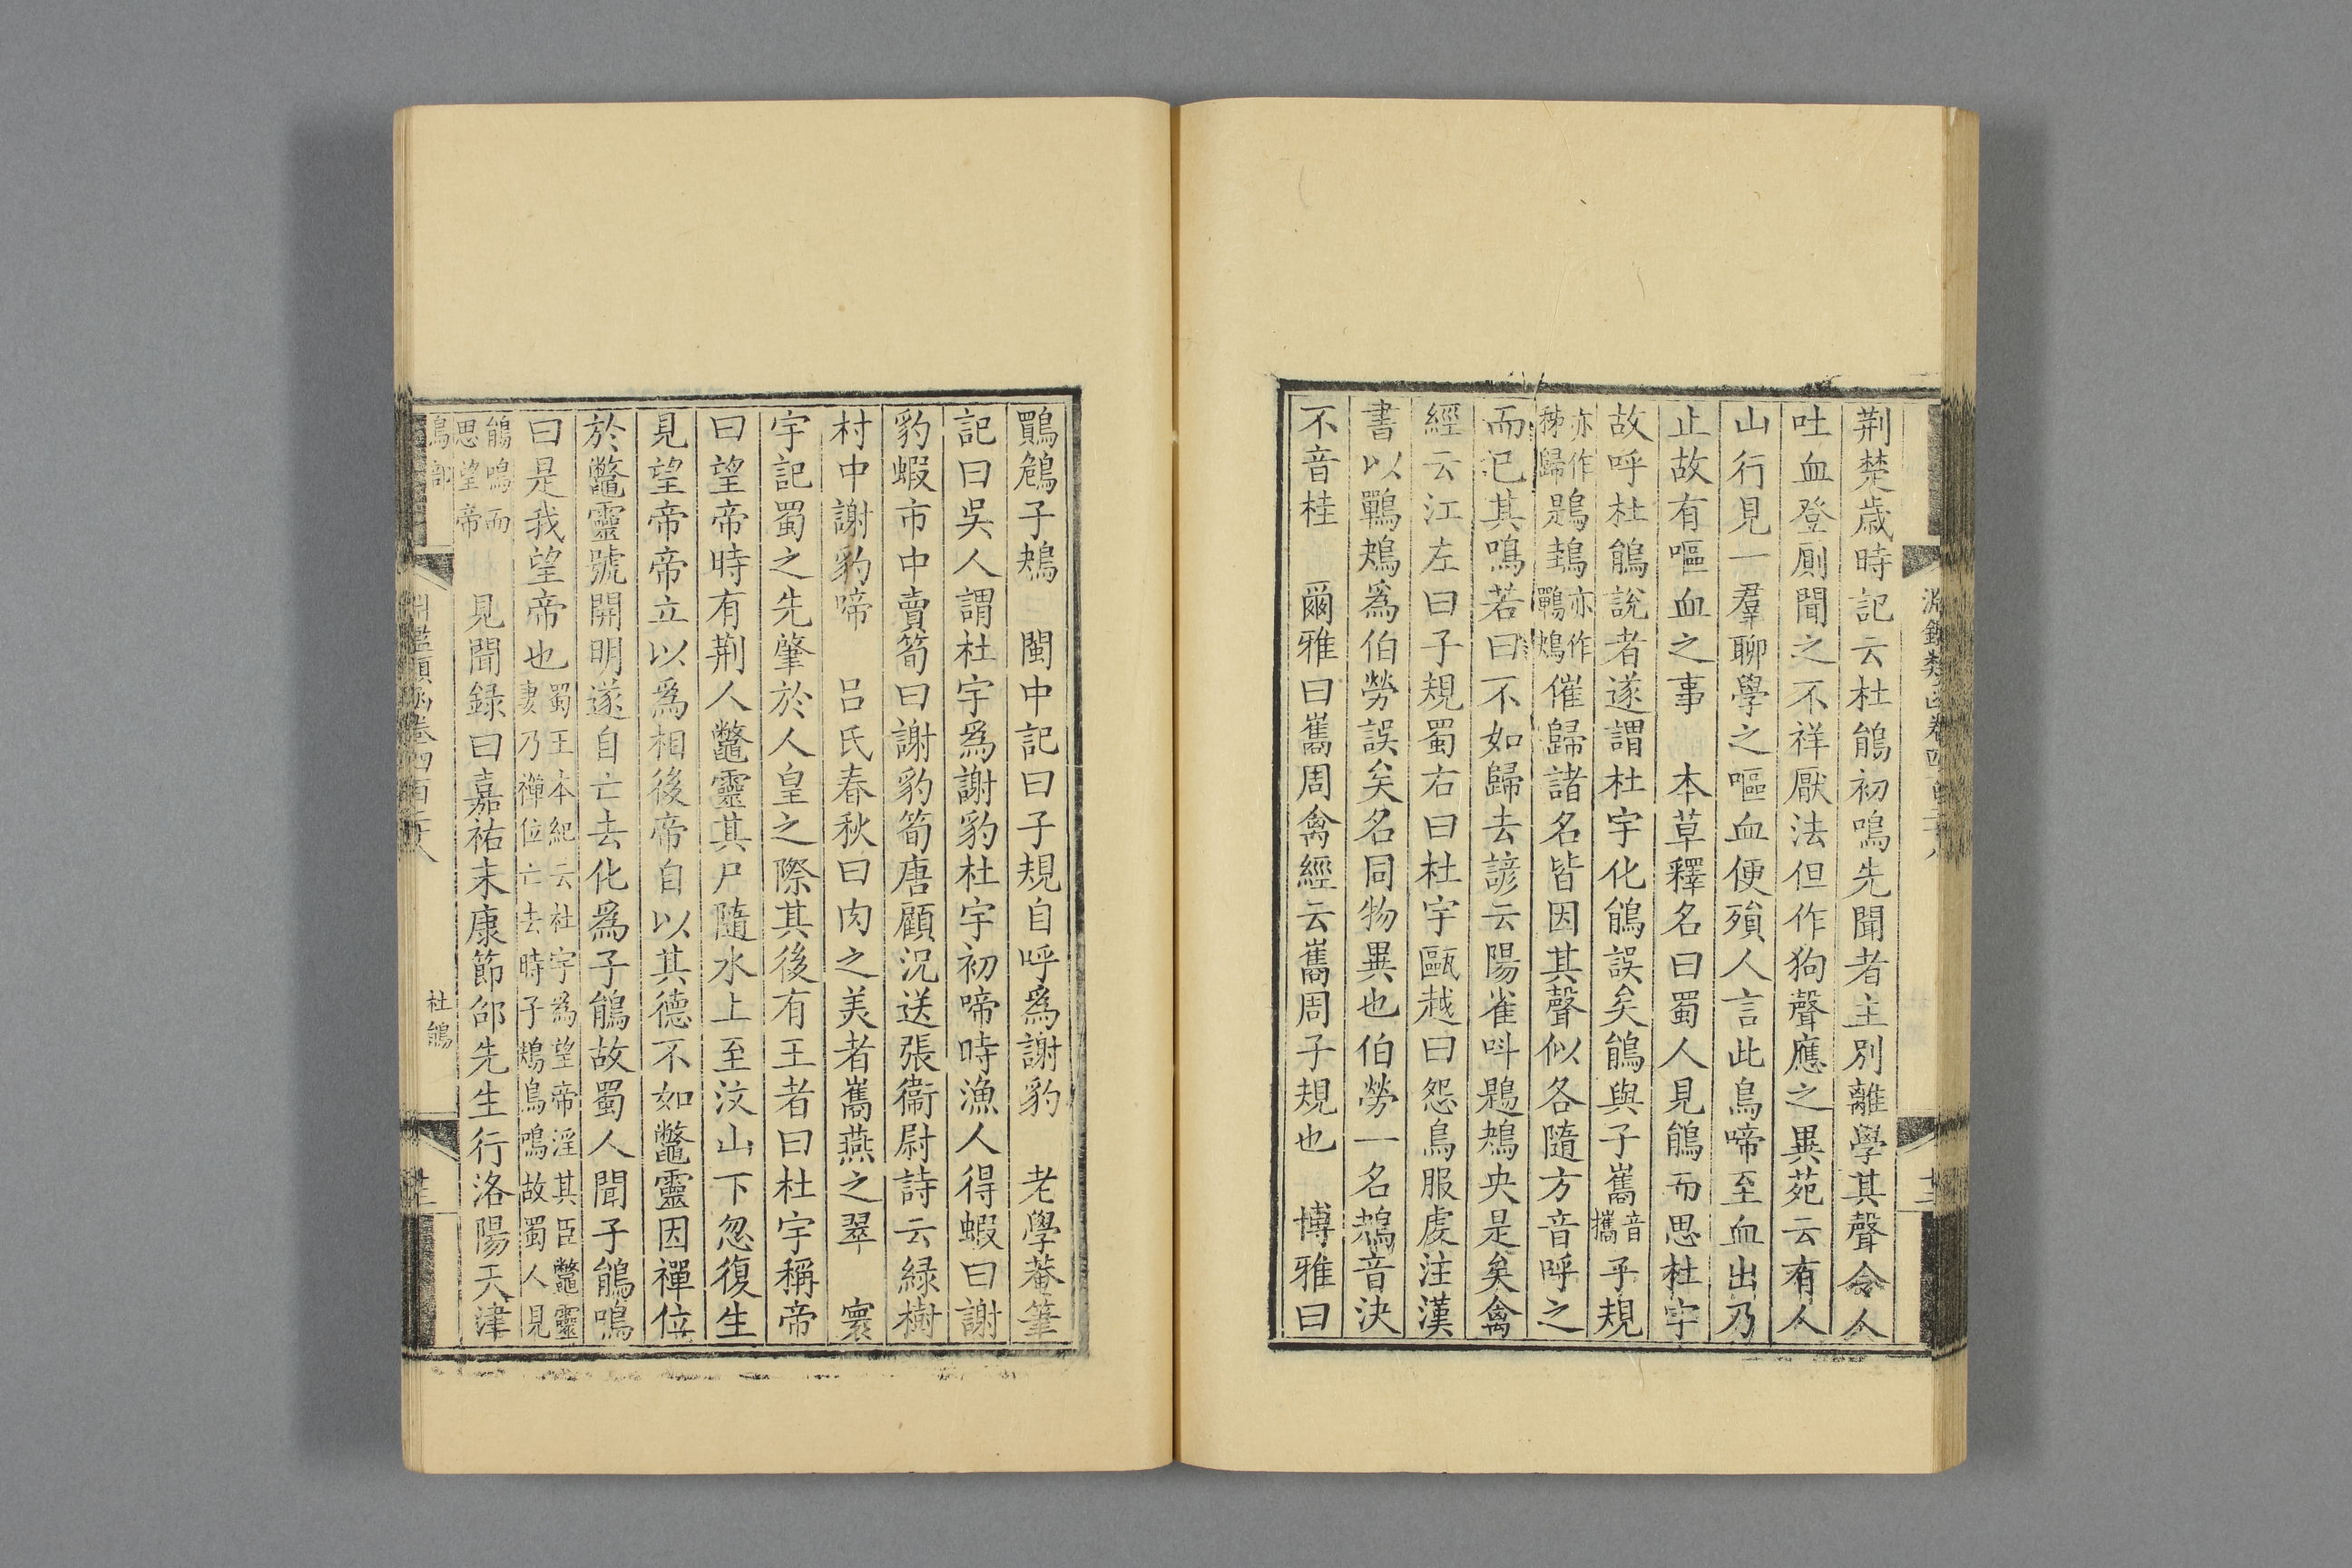 荆楚歲時記云杜鵑初鳴先聞者主別離學其聲令人
吐血登厠聞之不祥厭法但作狗聲應之異苑云有人
山行見一羣聊學之嘔血便殞人言此鳥啼至血出乃
止故有嘔血之事　本草釋名曰蜀人見鵑而思杜宇
故呼杜鵑說者遂謂杜宇化鵑誤矣鵑與子巂音攜子規
亦作秭歸鶗鴂亦作鷤鴂催歸諸名皆因其聲似各隨方音呼之
而已其鳴若曰不如歸去諺云陽雀呌鶗鴂央是矣禽
經云江左曰子規蜀右曰杜宇甌越曰怨鳥服虔注漢
書以鷤鴂爲伯勞誤矣名同物異也伯勞一名鴂音決
不音桂　爾雅曰巂周禽經云巂周子規也　博雅曰
鷤䳏子鴂　閩中記曰子規自呼爲謝豹　老學菴筆
記曰吳人謂杜宇爲謝豹杜宇初啼時漁人得蝦曰謝
豹蝦市中賣筍曰謝豹筍唐顧況送張衞尉詩云緑樹
村中謝豹啼　呂氏春秋曰肉之美者巂燕之翠　寰
宇記蜀之先肇於人皇之際其後有王者曰杜宇稱帝
曰望帝時有荆人鼈靈其尸隨水上至汶山下忽復生
見望帝帝立以爲相後帝自以其德不如鼈靈因禪位
於鼈靈號開明遂自亡去化爲子鵑故蜀人聞子鵑鳴
曰是我望帝也蜀王本紀云杜宇爲望帝淫其臣鼈靈妻乃禪位亡去時子鴂鳥鳴故蜀人見
鵑鳴而思望帝　見聞録曰嘉祐末康節邵先生行洛陽天津
鳥部
淵鑑類函卷四百二十八
杜鵑